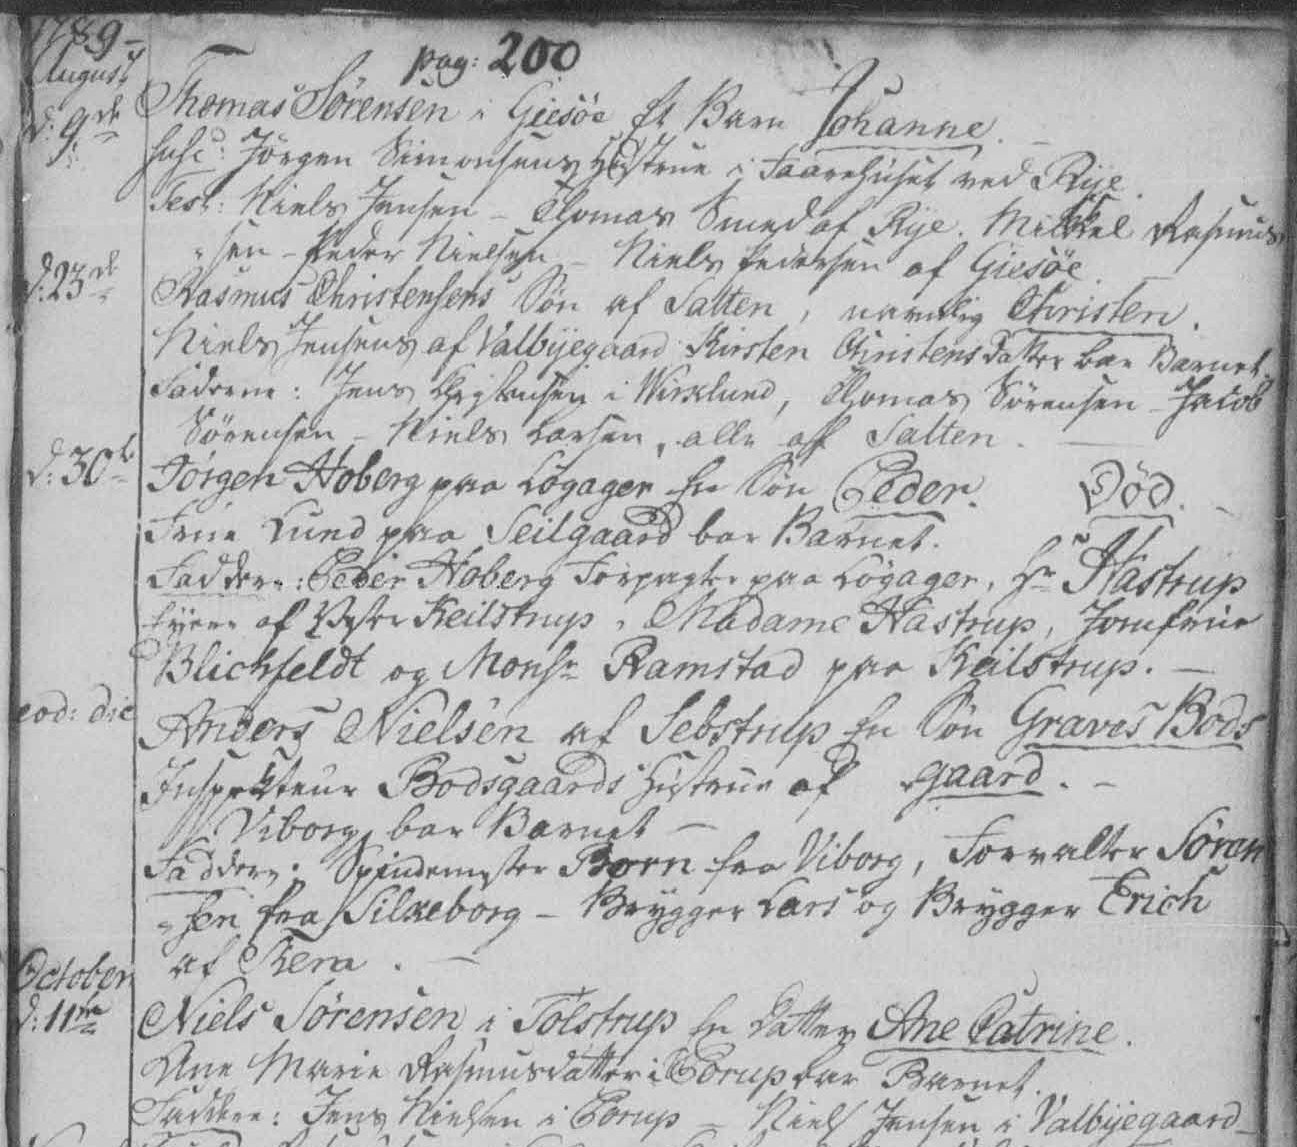 1789
pag: 200
August
d: 9de Thomas Sørensen i Giesøe et Barn Johanne.
Susc: Jörgen Simonsens Hustrue i Faarehuset ved Rije.
Test: Niels Jensen - Thomas Smed af Rije. Mikkel Rasmus
"sen - Peder Nielsen - Niels Pedersen af Giesöe.
d: 23de Rasmus Christensens Sön af Salten, navnlig Christen.
Niels Jensens af Valbyegaard Kirsten Christensdatter bar Barnet.
Faderne: Jens Christensen i Wirklund, Thomas Sörensen - Jacob
Sörensen - Niels Larsen, alle af Salten.
d: 30te Jörgen Hoberg paa Lögager En Sön Peder. Död.
Lund paa Seilgaard bar Barnet.
Faddere: Peder Hoberg Forpagter paa Lögager, Hr Hastrup
Eyere af Vester Keilstrup, Madame Hastrup, Jomfrue
Blichfeldt og Monsr Ramstad paa Keilstrup.
eod: die Anders Nielsen af Sebstrup En Sön Graves Bods
Inspecteur Bodsgaards Hustrue af "gaard.
Viborg bar Barnet -
Faddere: Spindemester Born fra Viborg, Forvalter Sören
"sen fra Silkeborg - Brygger Lars og Brygger Erich
af Kera.
October
d: 11te Niels Sörensen i Tolstrup En Datter Ane Catrine.
Ane Marie Rasmusdatter i Torup bar Barnet.
Faddere: Jens Nielsen i Torup - Niels Jensen i Valbyegaard